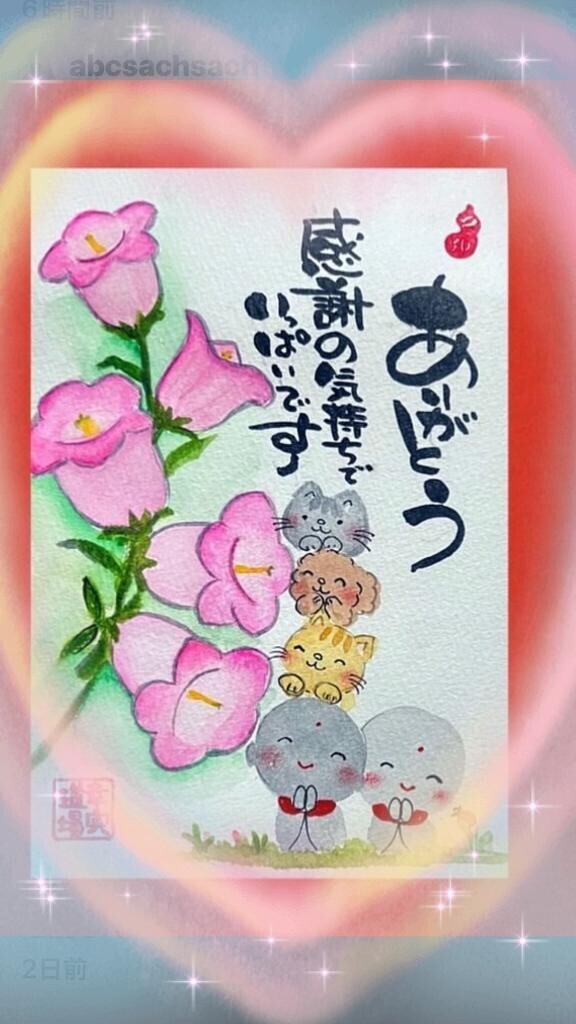 6時間前
abcsachsach
ありがとう
感謝の気持ちで
いっぱいです
2日前